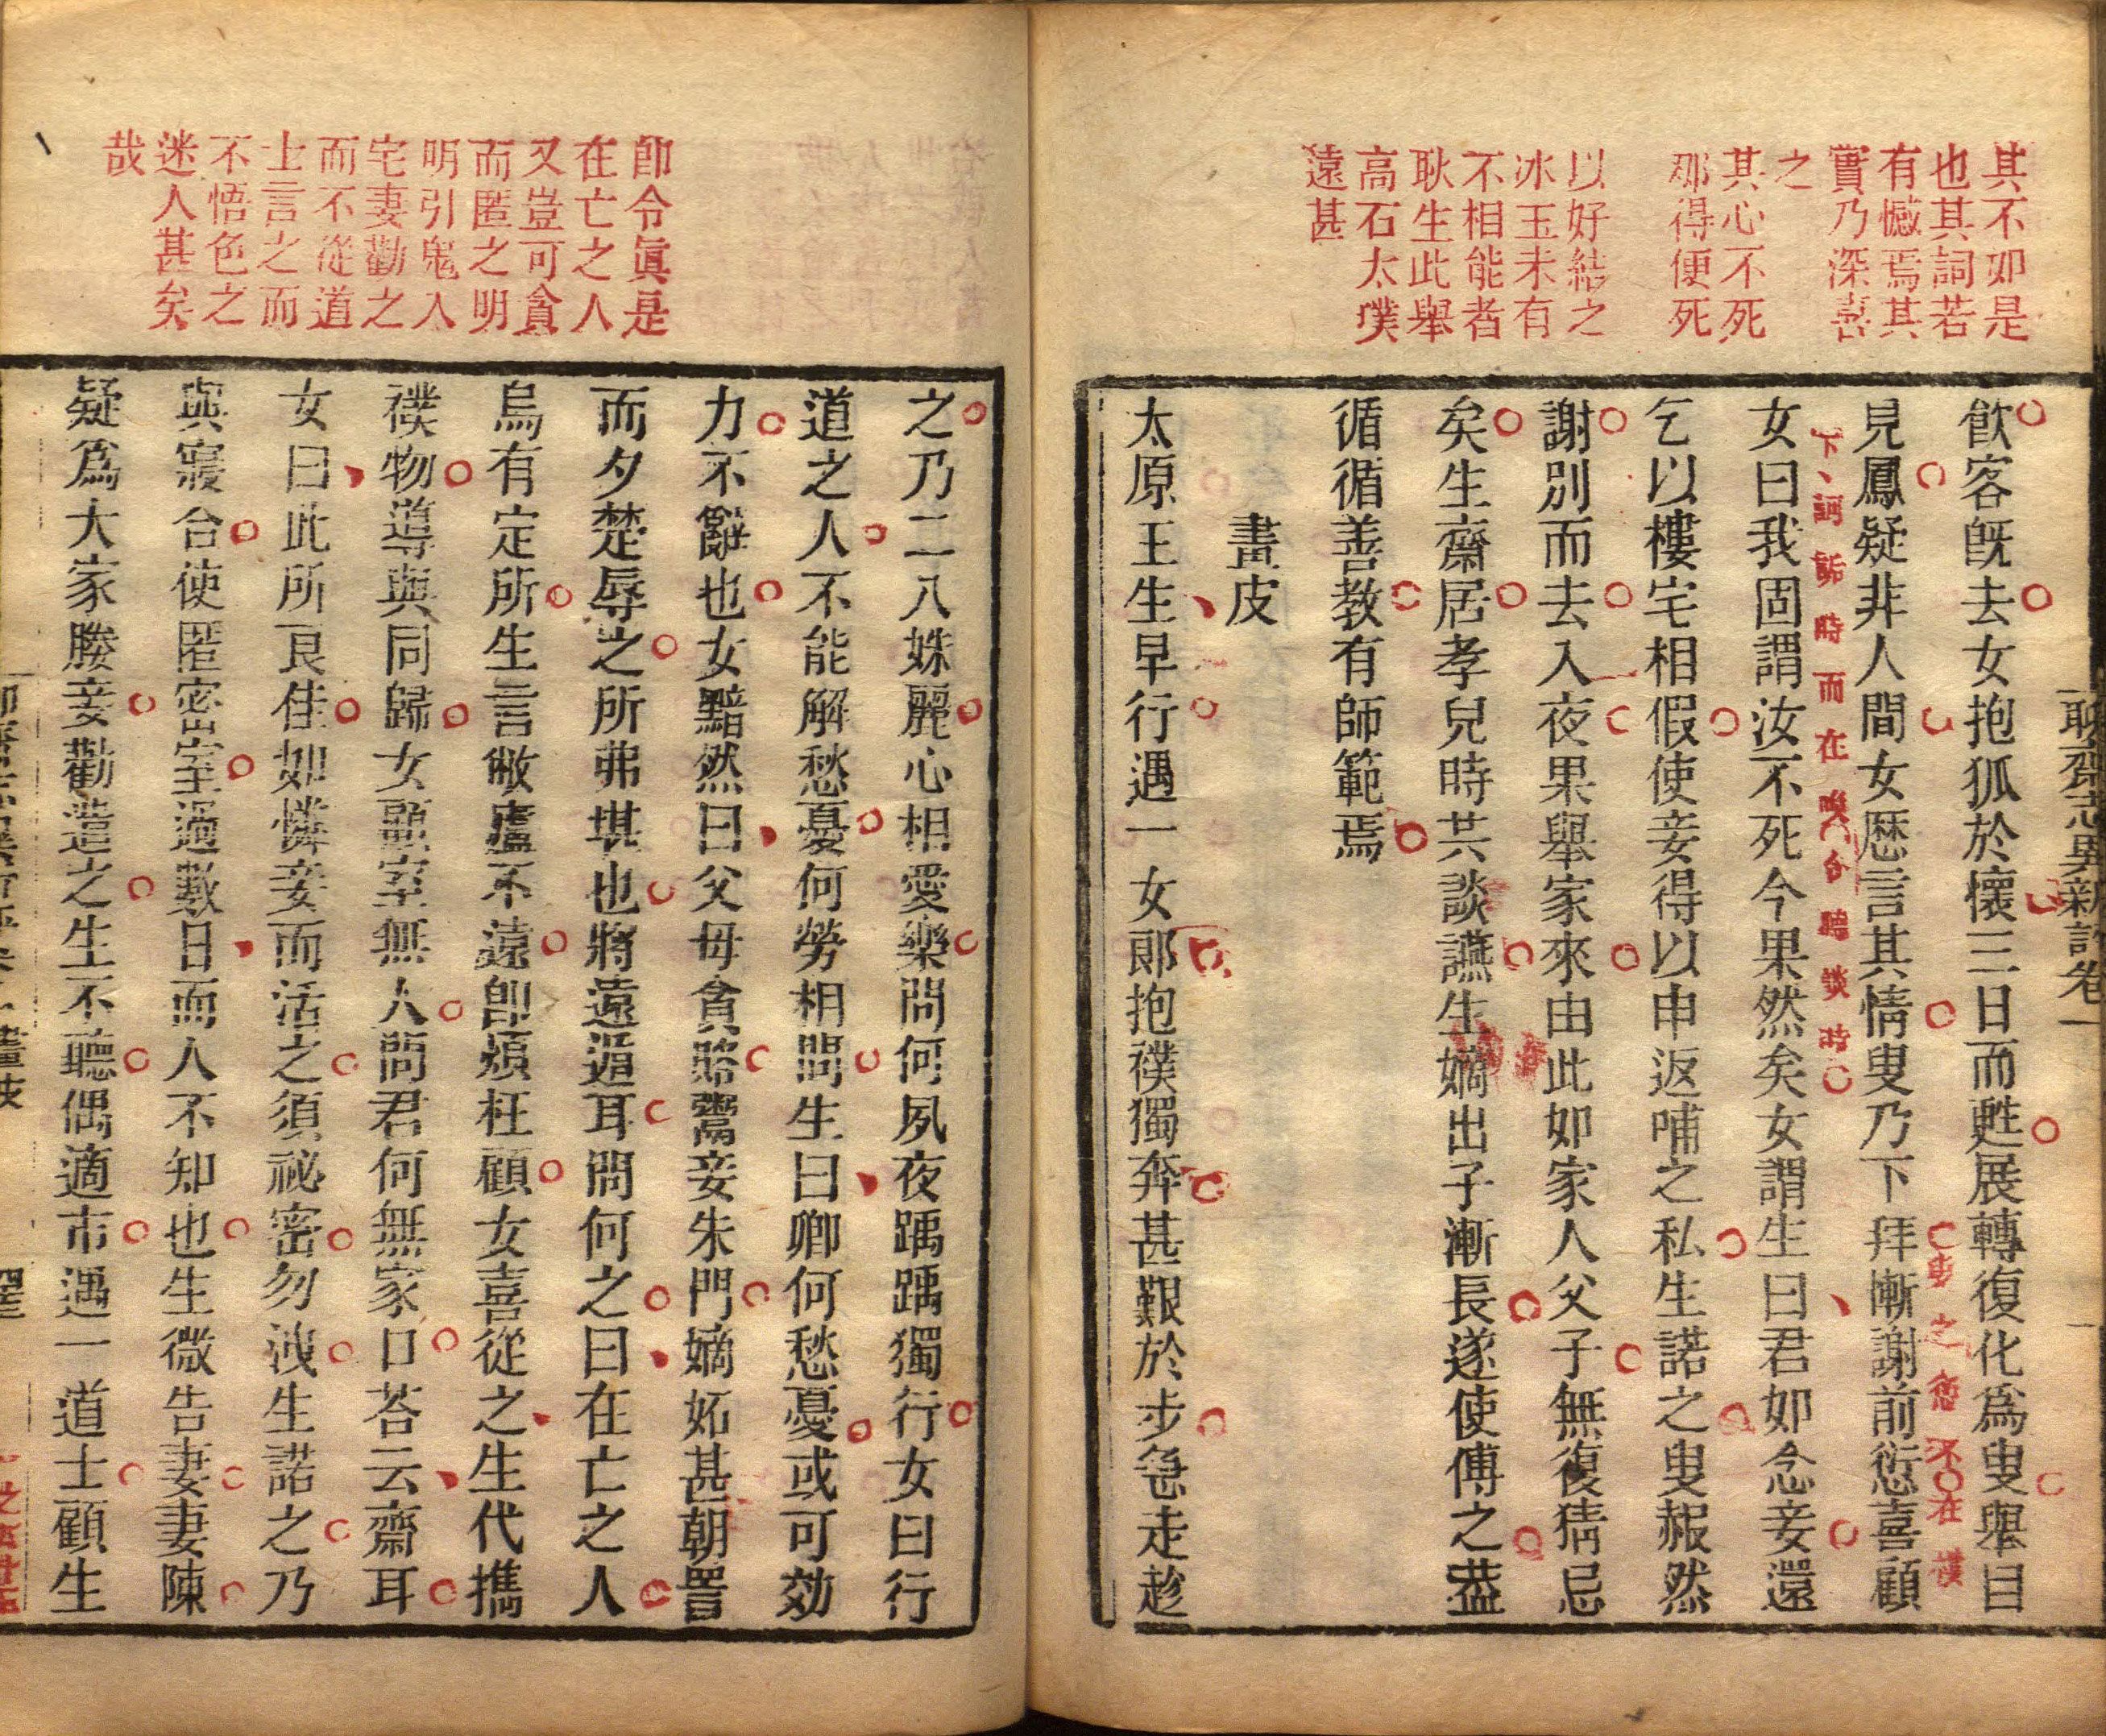 聊齋志異新評卷一
其不如是
也其詞若
有憾焉其
實乃深喜
之
其心不死
那得便死
以好結之
冰玉未有
不相能者
耿生此舉
高石太璞
遠甚
飲客旣去女抱狐於懷三日而甦展轉復化爲叟舉目
見鳳疑非人間女歷言其情叟乃下拜慚謝前愆喜顧
女曰我固謂汝不死今果然矣女謂生曰君如念妾還
乞以樓宅相假使妾得以申返哺之私生諾之叟赧然
謝別而去入夜果舉家來由此如家人父子無復猜忌
矣生齋居孝兒時共談讌生嫡出子漸長遂使傅之蓋
循循善教有師範焉
畫皮
太原王生早行遇一女郎抱襆獨奔甚艱於步急走趁
即令眞是
在亡之人
又豈可貪
而匿之明
明引鬼入
宅妻勸之
而不從道
士言之而
不悟色之
迷人甚矣
哉
之乃二八姝麗心相愛樂問何夙夜踽踽獨行女曰行
道之人不能解愁憂何勞相問生曰卿何愁憂或可効
力不辭也女黯然曰父母貪賂鬻妾朱門嫡妬甚朝詈
而夕楚辱之所弗堪也將遠遁耳問何之曰在亡之人
烏有定所生言敝廬不遠卽煩枉顧女喜從之生代攜
襆物導與同歸女顧室無人問君何無家口荅云齋耳
女曰此所良佳如憐妾而活之須祕密勿洩生諾之乃
與寢合使匿密室過數日而人不知也生微告妻妻陳
疑爲大家媵妾勸遣之生不聽偶適市遇一道士顧生